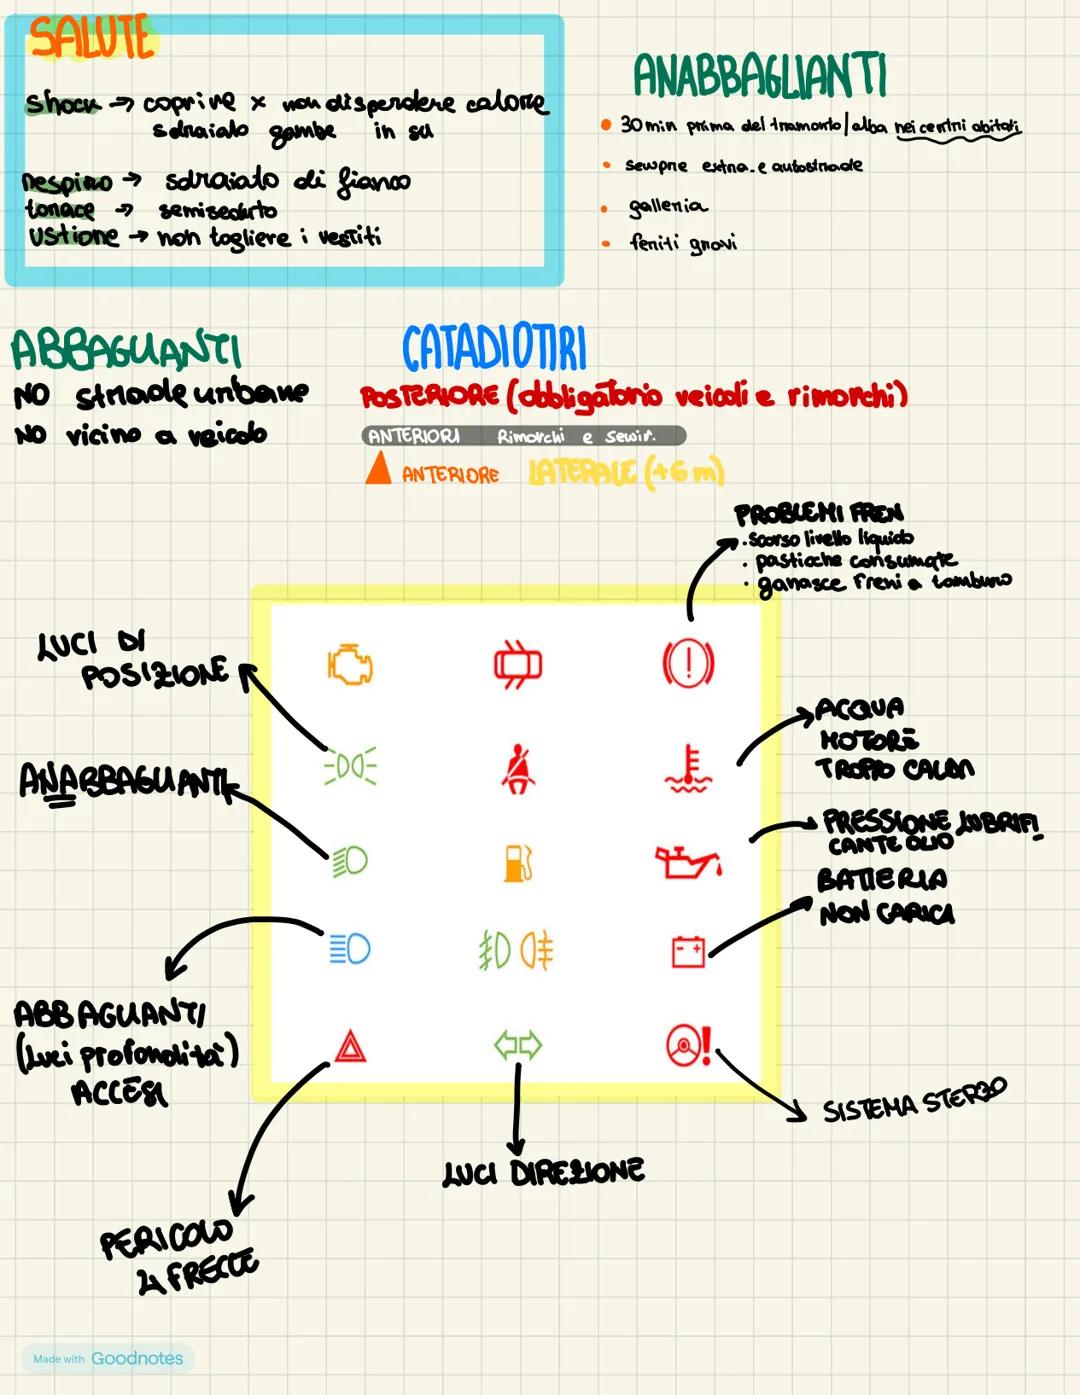 SALUTE
shock → coprire x non disperdere calore
sdraiato gambe in su
respiro → sdraiato di fianco
torace → semiseduto
ustione → non togliere i vestiti
ANABBAGLIANTI
• 30 min prima del tramonto/alba nei centri abitati
• sempre extra. e autostrade
• galleria
• feriti gravi
ABBAGLIANTI
NO strade urbane
NO vicino a veicolo
CATADIOTTRI
POSTERIORE (obbligatorio veicoli e rimorchi)
ANTERIORI Rimorchi e semir.
ANTERIORE LATERALE (+6 m)
PROBLEMI FREN
• scarso livello liquido
• pasticche consumate
• ganasce freni a tamburo
LUCI DI
POSIZIONE
ANABBAGLIANTI
ABBAGLIANTI
(luci profondità)
ACCESI
PERICOLO
4 FRECCE
LUCI DIREZIONE
ACQUA
MOTORE
TROPPO CALDA
PRESSIONE LUBRIFI
CANTE OLIO
BATTERIA
NON CARICA
SISTEMA STERZO
Made with Goodnotes